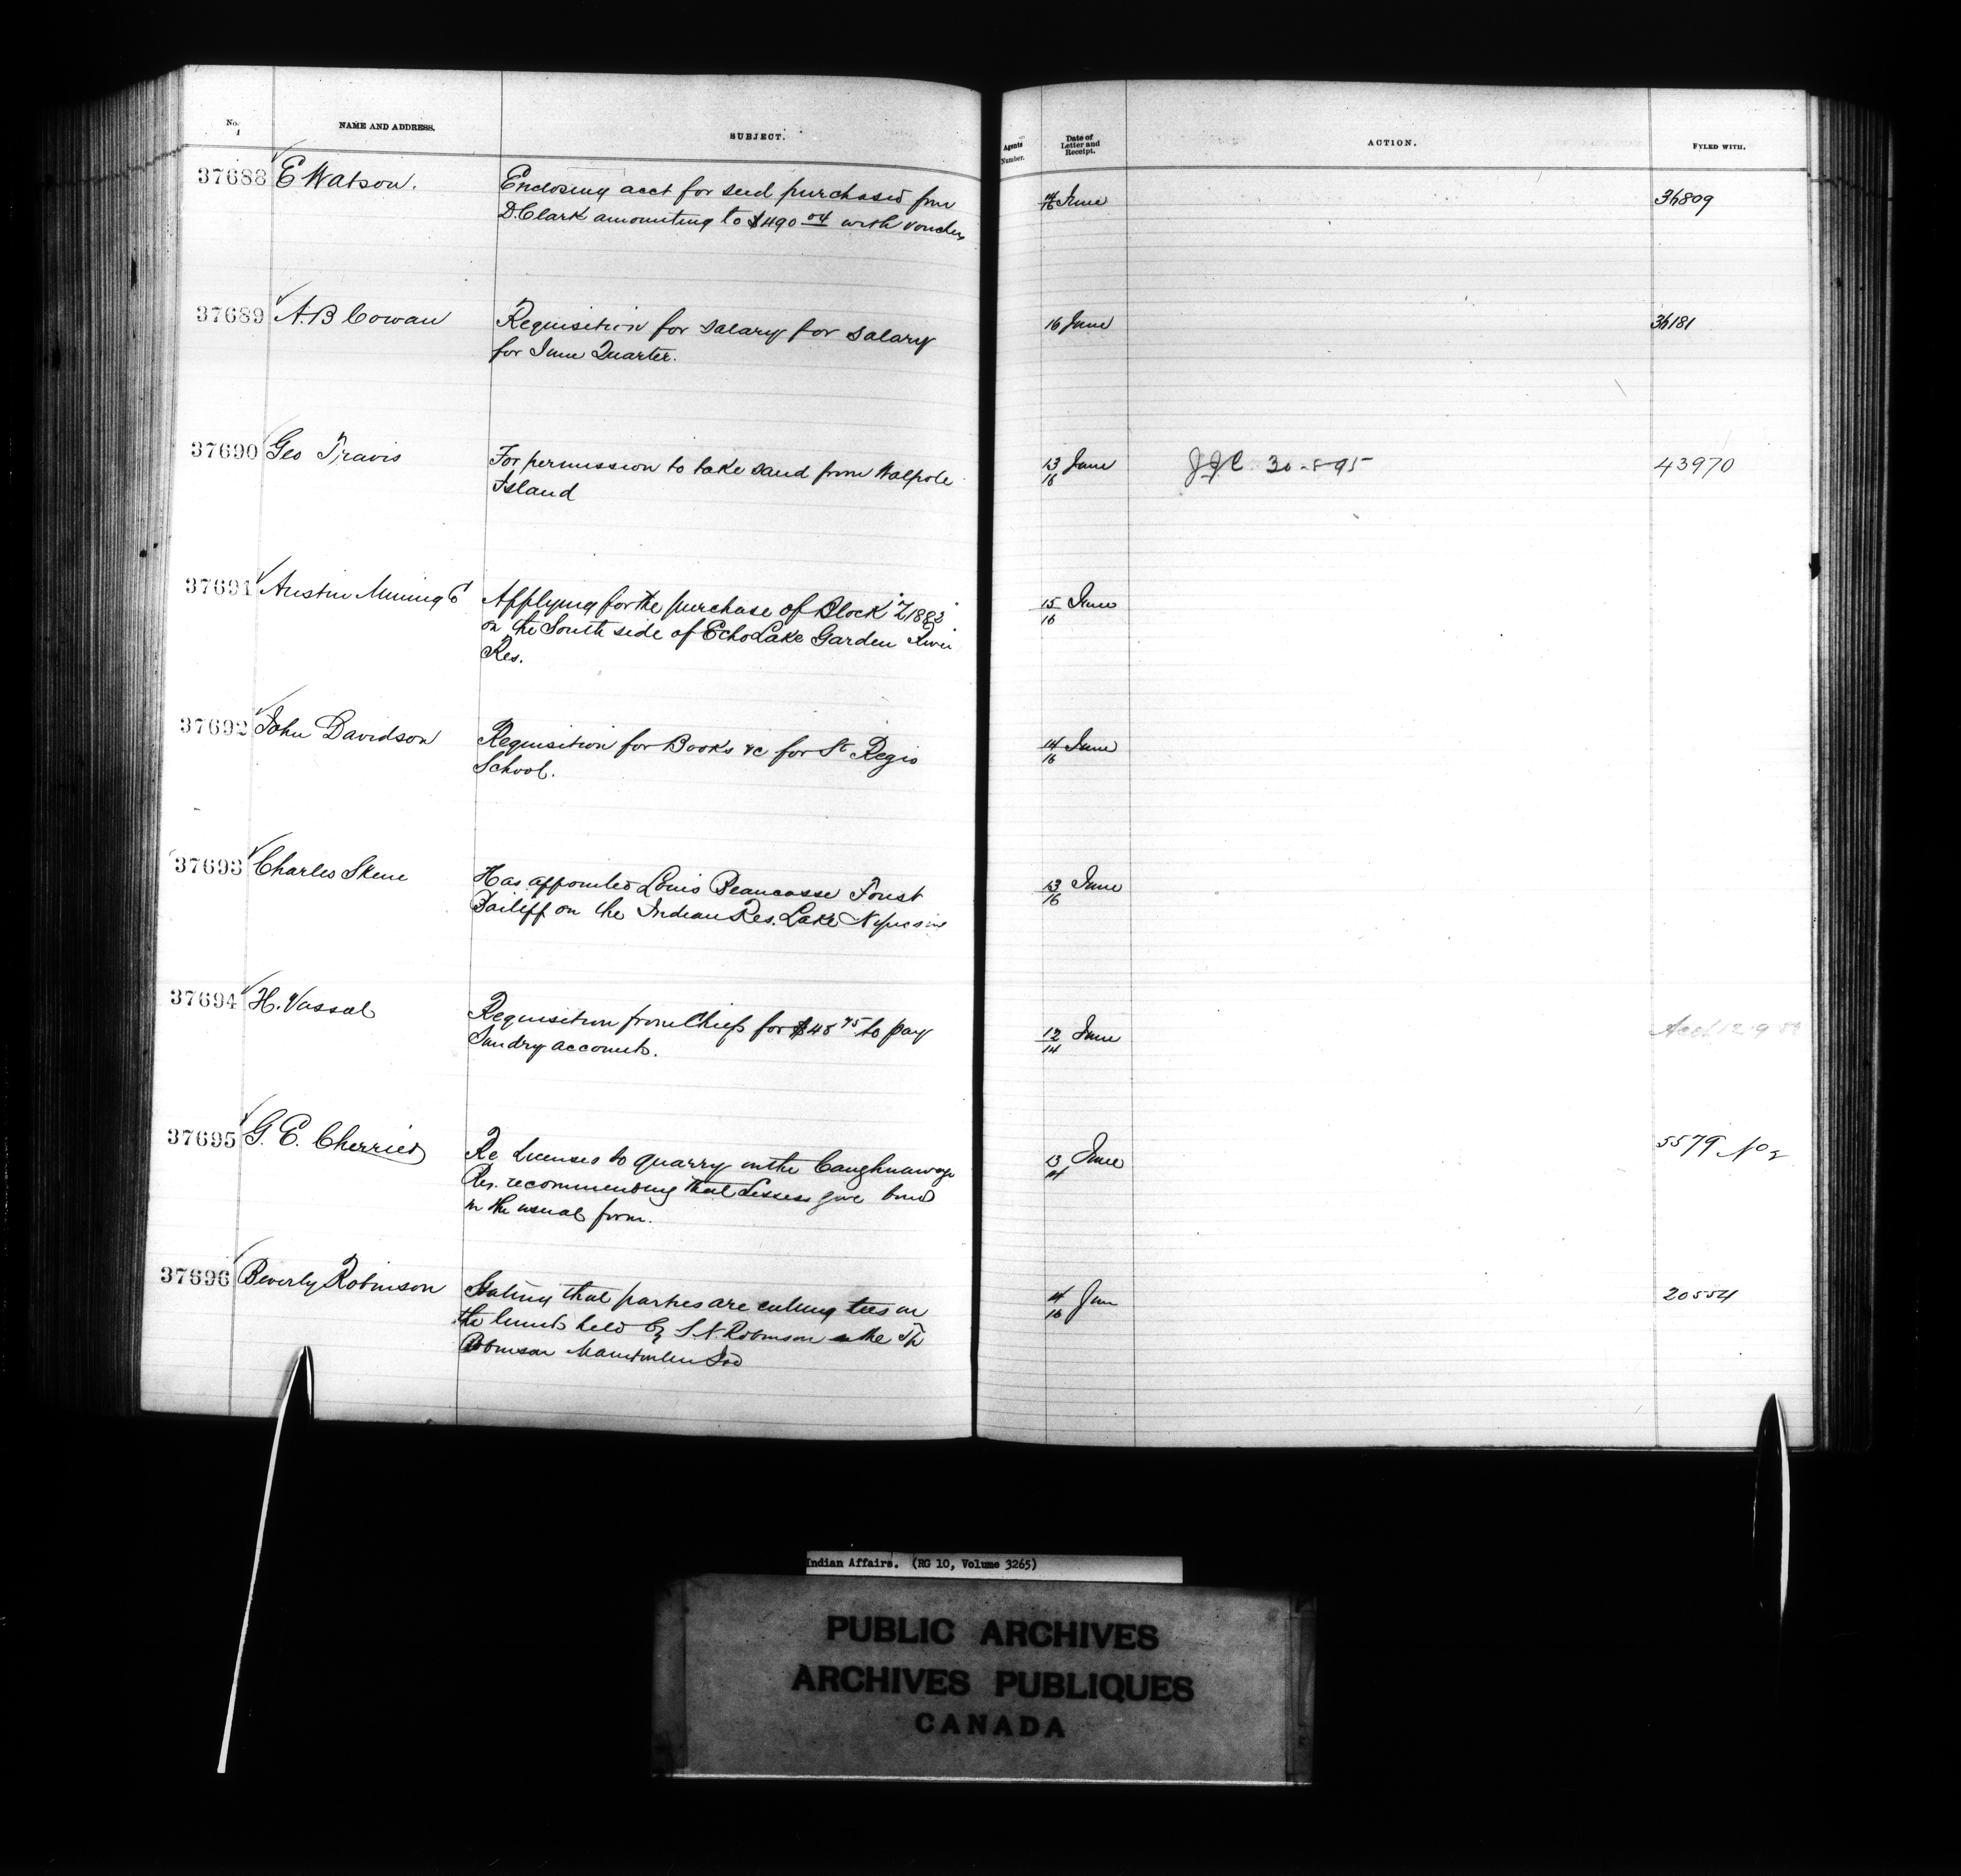 No. NAME AND ADDRESS. SUBJECT. Agents Number. Date of Letter and Receipt. ACTION. FYLED WITH.
37688 E Watson. Enclosing acct for seed purchased from 14/16 June 36809
D. Clark amounting to $490 04 with vouchers
37689 A. B Cowan Requisition for salary for salary 16 June 36181
for June Quarter.
37690 Geo Travis For permission to take sand from Walpole 13/16 June JJC 30-8-95 43970
Island
37691 Austin Mining Co Applying for the purchase of Block "Z1882" 15/16 June
on the South side of Echo Lake Garden River
Res.
37692 John Davidson Requisition for Books &c for St Regis 14/16 June
School.
37693 Charles Skene Has appointed Louis Beaucasse Forest 13/16 June
Bailiff on the Indian Res. Lake Nipissing
37694 H. Vassal Requisition from Chiefs for $48 75 to pay 12/14 June
Sundry accounts.
37695 G. E. Cherrier Re Licenses to quarry on the Caughnawaga 13/14 June 5579 No 2
Res. recommending that Lessees give bond
in the usual form.
37696 Beverly Robinson Stating that parties are cutting ties on 14/16 June 20554
the limits held by S. N. Robinson in the Tp
Robinson Manitoulin Isd
Indian Affairs. (RG 10, Volume 3265)
PUBLIC ARCHIVES
ARCHIVES PUBLIQUES
CANADA